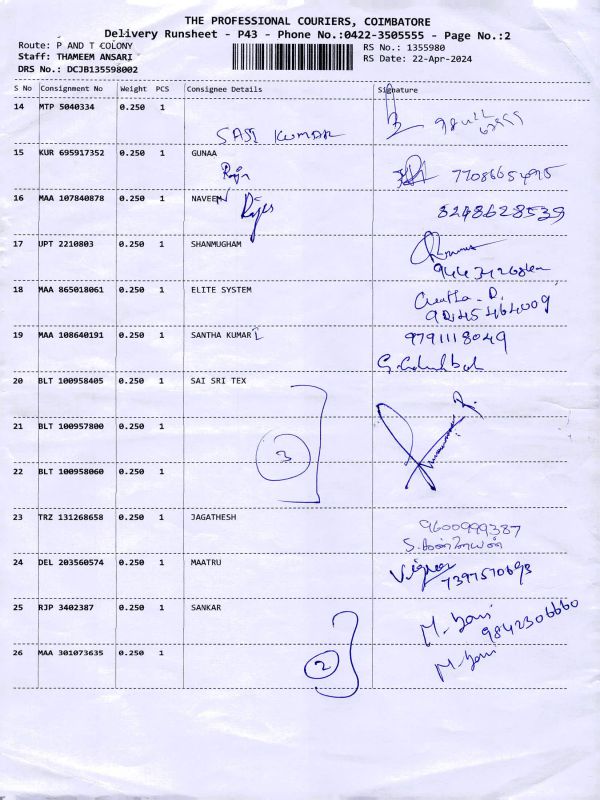 THE PROFESSIONAL COURIERS, COIMBATORE
Delivery Runsheet - P43 - Phone No.:0422-3505555 - Page No.:2
Route: P AND T COLONY
RS No.: 1355980
Staff: THAMEEM ANSARI
RS Date: 22-Apr-2024
DRS No.: DCJB135598002
S No Consignment No Weight PCS Consignee Details Signature
14 MTP 5040334 0.250 1
SASI KUMAR
15 KUR 695917352 0.250 1 GUNAA
Raja 7708665495
16 MAA 107840878 0.250 1 NAVEEN
8248628539
17 UPT 2210803 0.250 1 SHANMUGHAM
18 MAA 865018061 0.250 1 ELITE SYSTEM
9045464009
19 MAA 108640191 0.250 1 SANTHA KUMARI 9791118049
20 BLT 100958405 0.250 1 SAI SRI TEX
21 BLT 100957800 0.250 1
3
22 BLT 100958060 0.250 1
23 TRZ 131268658 0.250 1 JAGATHESH
9600999387
24 DEL 203560574 0.250 1 MAATRU
7397570693
25 RJP 3402387 0.250 1 SANKAR
M. 9842306660
26 MAA 301073635 0.250 1
2 M.